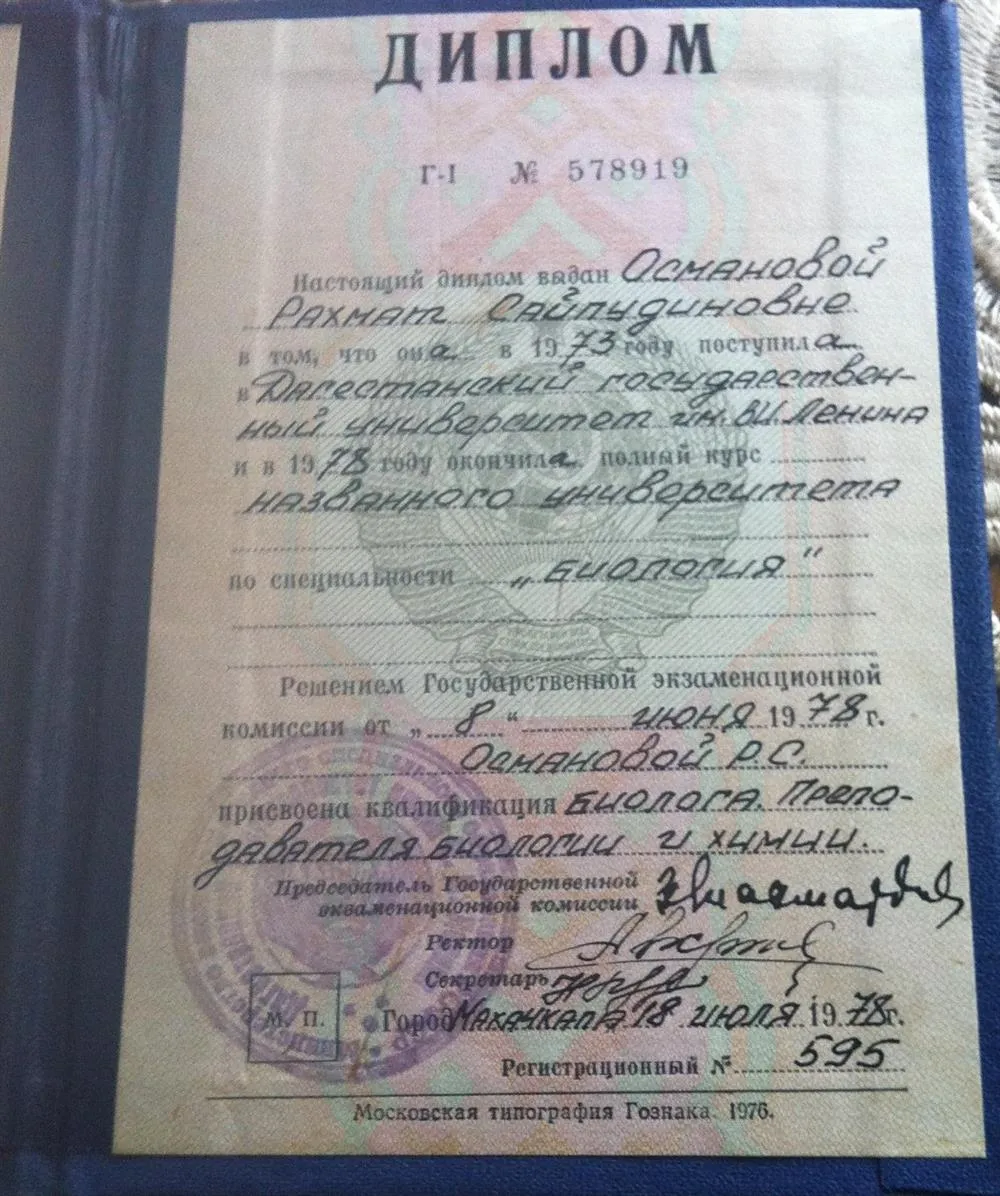 ДИПЛОМ
Г-I № 578919
Настоящий диплом выдан Османовой
Рахмат Сайпудиновне
в том, что она в 1973 году поступила
в Дагестанский государствен-
ный университет им. В.И. Ленина
и в 1978 году окончила полный курс
названного университета
по специальности „Биология"
Решением Государственной экзаменационной
комиссии от „8" июня 1978 г.
Османовой Р.С.
присвоена квалификация Биолога. Препо-
давателя биологии и химии.
Председатель Государственной
экзаменационной комиссии
Ректор
Секретарь
М. П.
Город Махачкала 18 июля 1978г.
Регистрационный № 595
Московская типография Гознака. 1976.